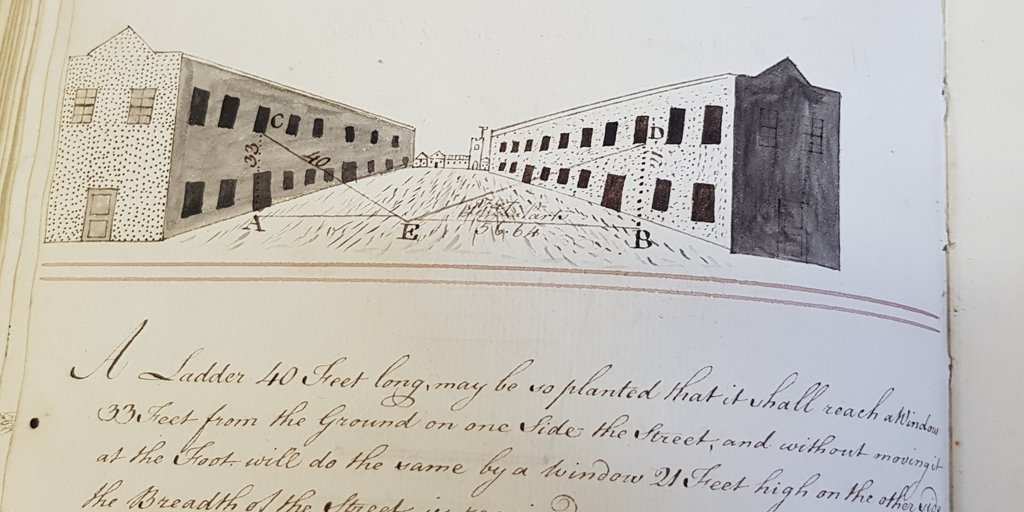 C
33
40
D
21
A
E
56.64
B
A Ladder 40 Feet long, may be so planted that it shall reach a Window
33 Feet from the Ground on one Side the Street, and without moving it
at the Foot will do the same by a Window 21 Feet high on the other side
the Breadth of the Street is